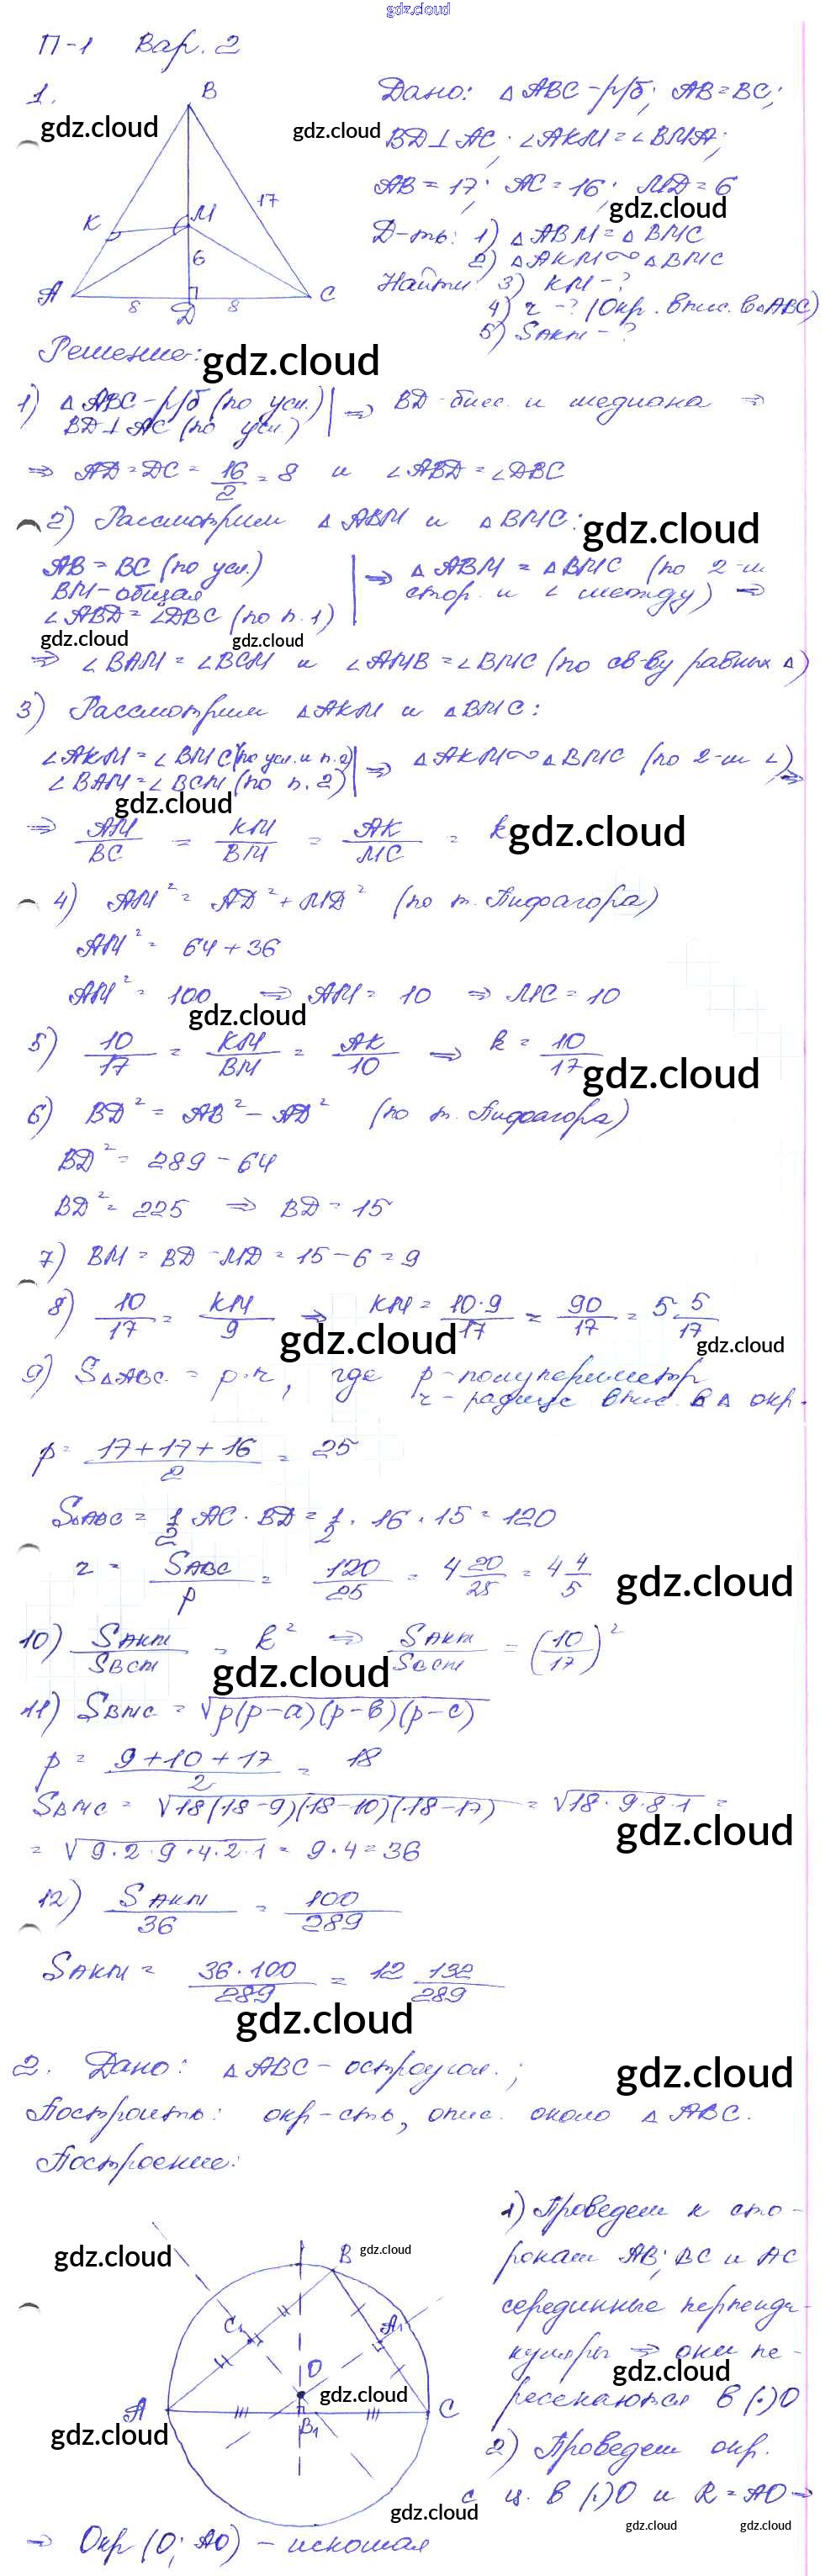 gdz.cloud
П-1 Вар. 2
1.
B
K
M
17
6
A
8
D
8
C
Дано: △ABC - р/б; AB=BC;
BD⊥AC; ∠AKM=∠BMA;
AB=17; AC=16; MD=6
gdz.cloud
gdz.cloud
gdz.cloud
Д-ть: 1) △ABM=△BMC
2) △AKM∾△BMC
Найти: 3) KM-?
4) r-? (Окр. впис. в △ABC)
5) SAKM-?
Решение:
gdz.cloud
1) △ABC-р/б (по усл.) | ⇒ BD-бисс. и медиана ⇒
BD⊥AC (по усл)
⇒ AD=DC= 16/2 =8 и ∠ABD=∠DBC
2) Рассмотрим △ABM и △BMC:
gdz.cloud
AB=BC (по усл.) | ⇒ △ABM=△BMC (по 2-м
BM-общая стор. и ∠ между) ⇒
∠ABD=∠DBC (по п.1)
gdz.cloud
gdz.cloud
⇒ ∠BAM=∠BCM и ∠AMB=∠BMC (по св-ву равных △)
3) Рассмотрим △AKM и △BMC:
∠AKM=∠BMC (по усл. и п.2) | ⇒ △AKM∾△BMC (по 2-м ∠) ⇒
∠BAM=∠BCM (по п.2)
gdz.cloud
⇒ AM/BC = KM/BM = AK/MC = k
gdz.cloud
4) AM²=AD²+MD² (по т. Пифагора)
AM²= 64+36
AM²= 100 ⇒ AM=10 ⇒ MC=10
gdz.cloud
5) 10/17 = KM/BM = AK/10 ⇒ k= 10/17
gdz.cloud
6) BD²=AB²-AD² (по т. Пифагора)
BD²=289-64
BD²=225 ⇒ BD=15
7) BM=BD-MD=15-6=9
8) 10/17 = KM/9 ⇒ KM= 10·9/17 = 90/17 = 5 5/17
gdz.cloud
gdz.cloud
9) S△ABC = p·r, где p-полупериметр
r-радиус впис. в △ окр.
p= 17+17+16/2 = 25
S△ABC= 1/2 AC·BD= 1/2 · 16 · 15=120
r= SABC/p = 120/25 = 4 20/25 = 4 4/5
gdz.cloud
10) SAKM/SBCM = k² ⇒ SAKM/SBCM = (10/17)²
gdz.cloud
11) SBMC = √p(p-a)(p-в)(p-c)
p= 9+10+17/2 = 18
SBMC = √18(18-9)(18-10)(18-17) = √18·9·8·1 =
gdz.cloud
= √9·2·9·4·2·1 = 9·4=36
12) SAKM/36 = 100/289
SAKM= 36·100/289 = 12 132/289
gdz.cloud
2. Дано: △ABC-остроугол.;
gdz.cloud
Построить: окр-сть, опис. около △ABC.
Построение:
gdz.cloud
B
gdz.cloud
C1
A1
O
gdz.cloud
A
B1
C
gdz.cloud
1) Проведем к сто-
ронам AB; BC и AC
серединные перпенди-
куляры ⇒ они пе-
gdz.cloud
ресекаются в (·)O
2) Проведем окр.
с ц. в (·)O и R=AO ⇒
gdz.cloud
gdz.cloud
gdz.cloud
⇒ Окр (O; AO) - искомая